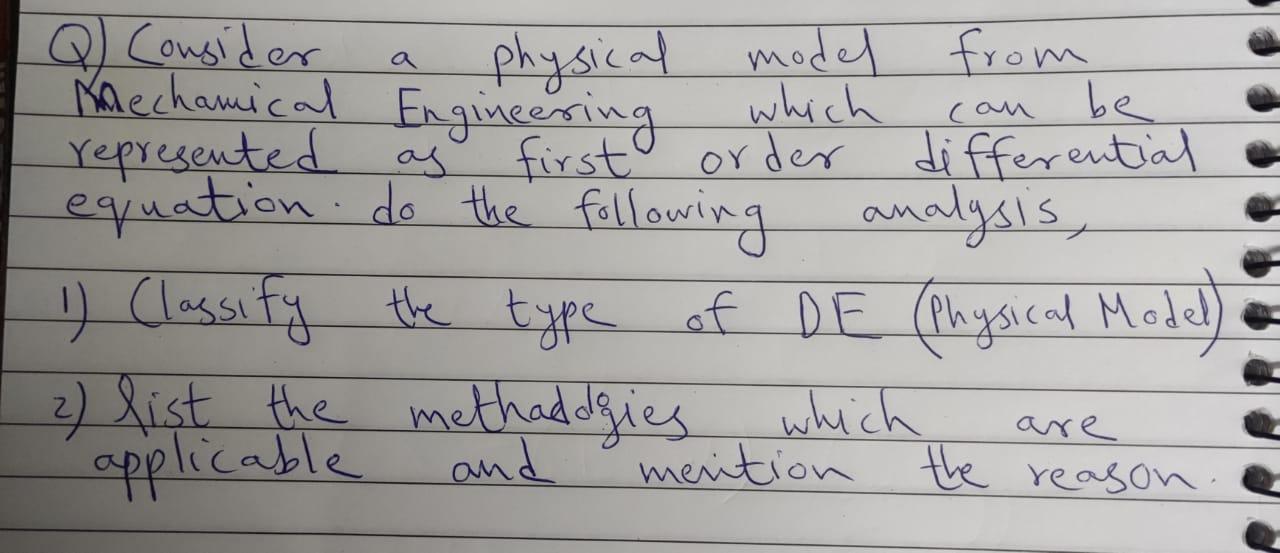 Q) Consider a physical model from
Mechanical Engineering which can be
represented as first order differential
equation. do the following analysis,
1) Classify the type of DE (Physical Model)
2) list the methadolgies which are
applicable and mention the reason.